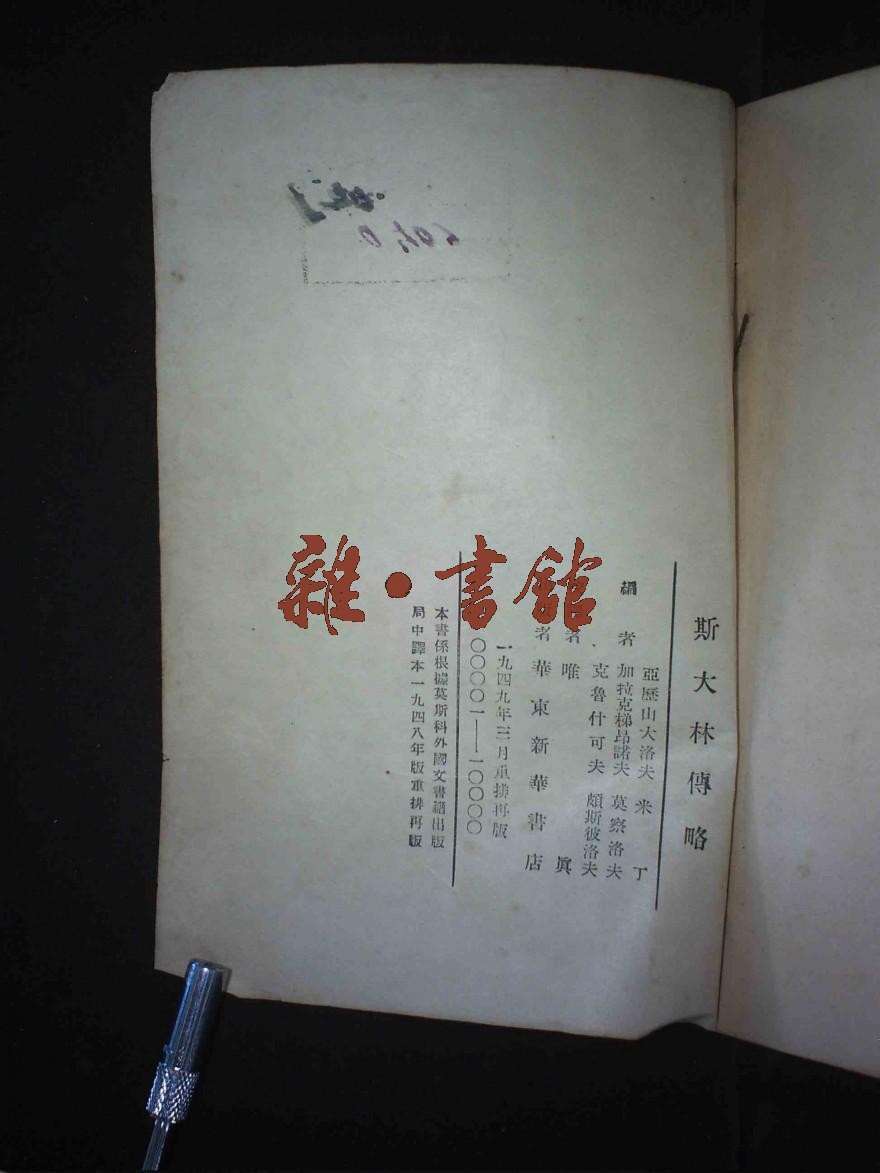 斯大林傳略
亞歷山大洛夫 米丁
編者 加拉克梯昂諾夫 莫察洛夫
克魯什可夫 頗斯彼洛夫
者 唯真
者 華東新華書店
一九四九年三月重排再版
〇〇〇〇一——一〇〇〇〇
本書係根據莫斯科外國文書籍出版
局中譯本一九四八年版重排再版
雜·書館